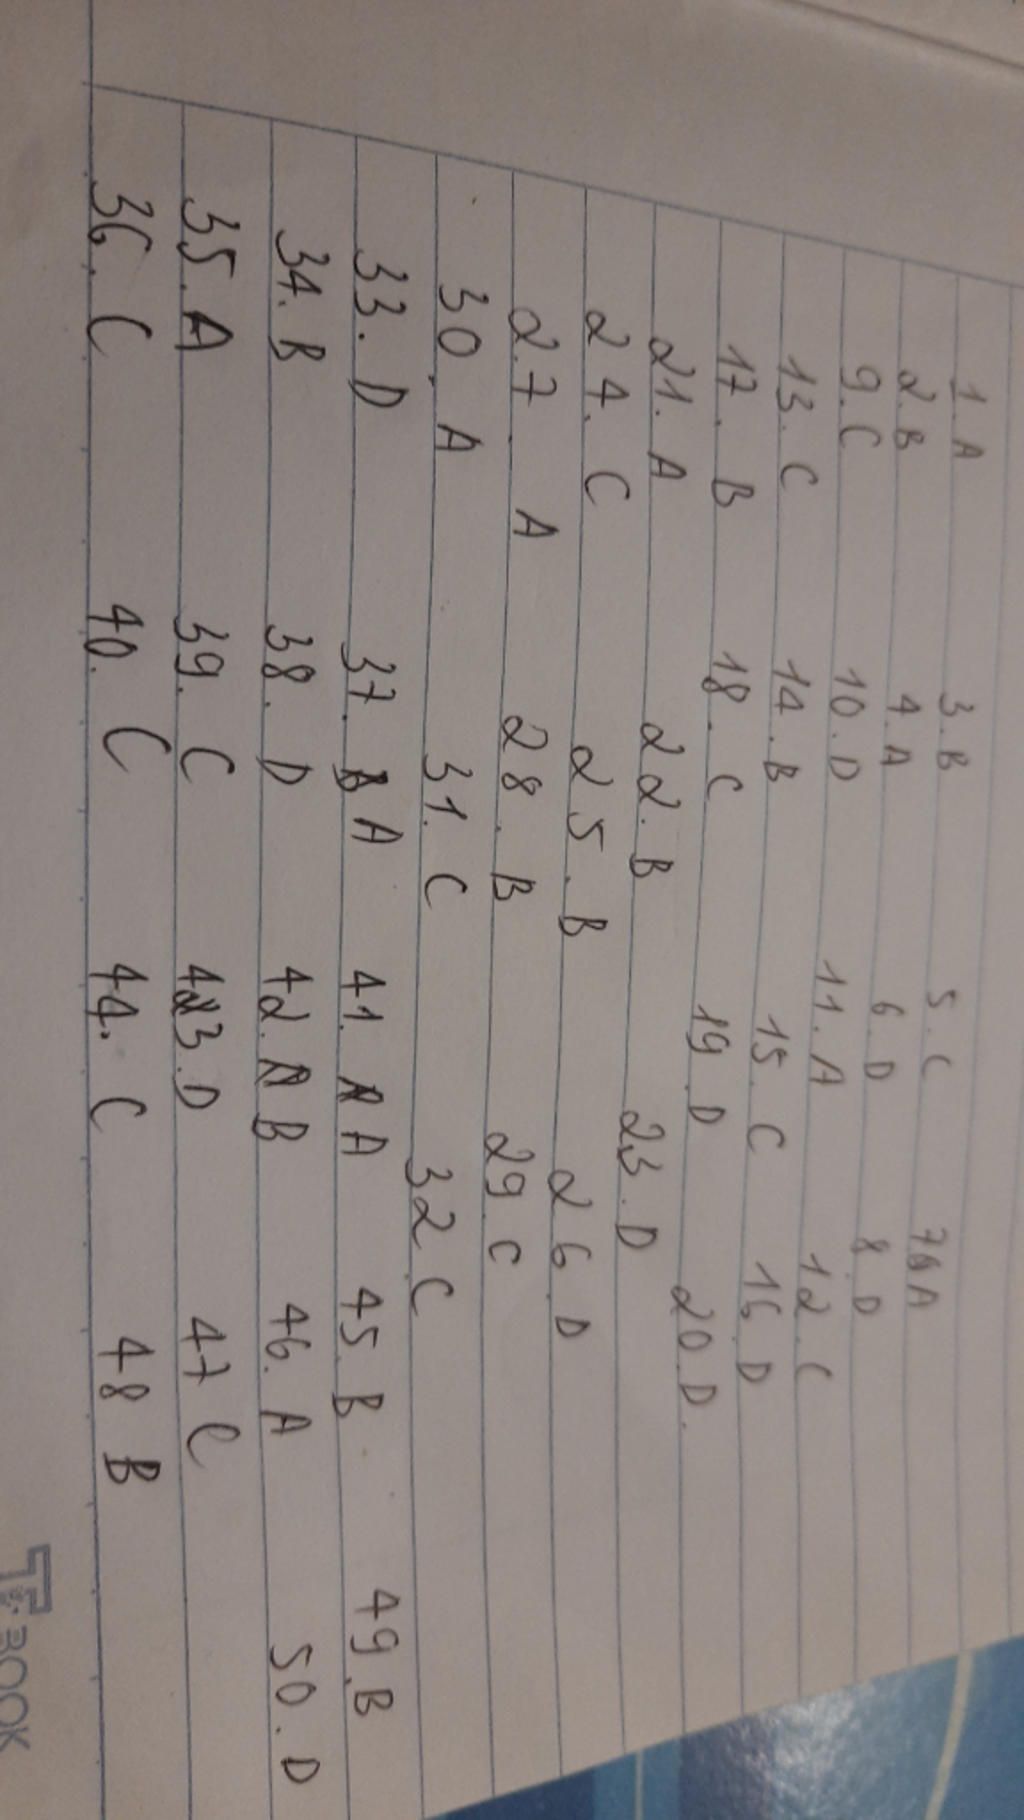 1. A 3. B 5. C 7. A
2. B 4. A 6. D 8. D
9. C 10. D 11. A 12. C
13. C 14. B 15. C 16. D
17. B 18. C 19. D 20. D.
21. A 22. B 23. D
24. C 25. B 26 D
27. A 28. B 29. C
30. A 31. C 32 C
33. D 37. A 41. A 45. B 49. B
34. B 38. D 42. B 46. A 50. D
35. A 39. C 43. D 47 C
36. C 40. C 44. C 48 B
BOOK